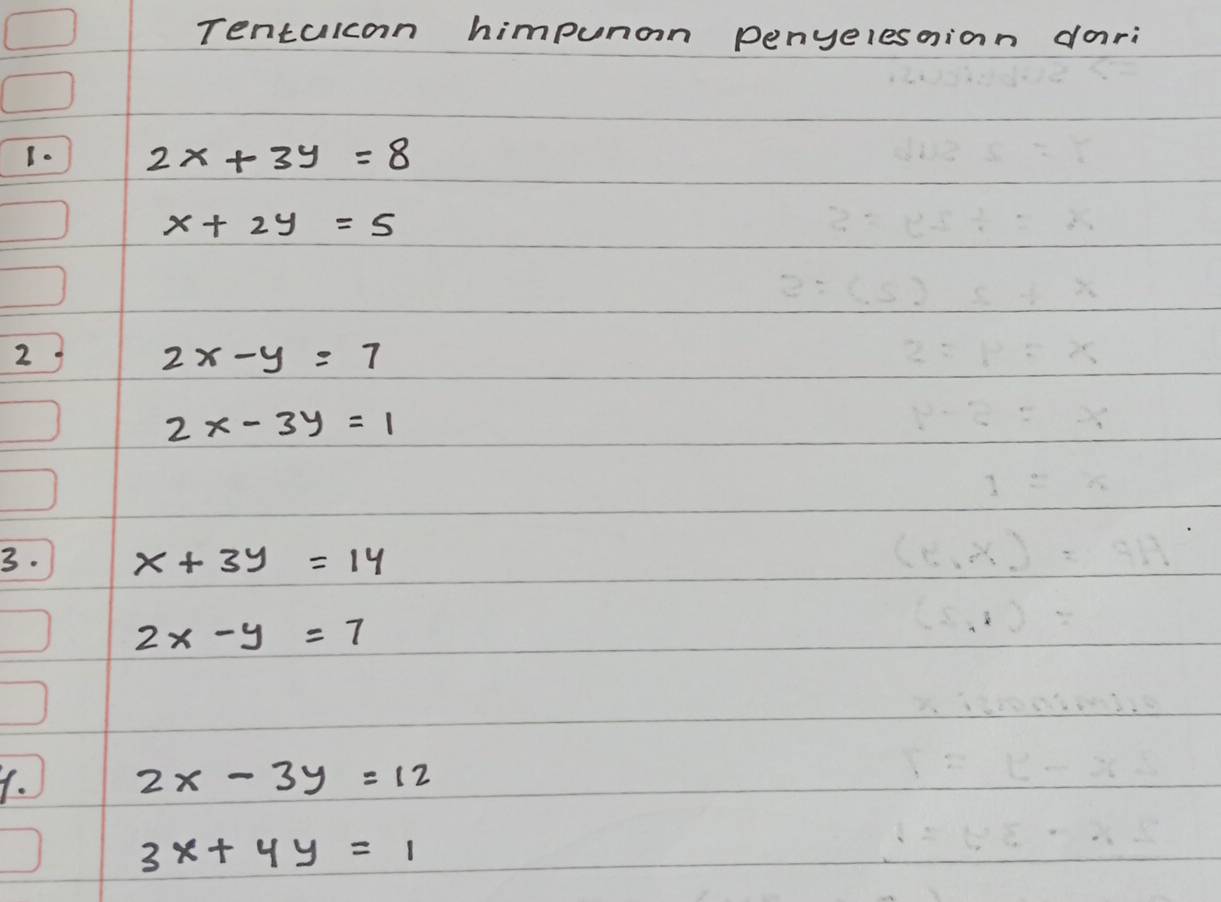 Tentukan himpunan penyelesaian dari
1. 2x + 3y = 8
x + 2y = 5
2. 2x - y = 7
2x - 3y = 1
3. x + 3y = 14
2x - y = 7
4. 2x - 3y = 12
3x + 4y = 1